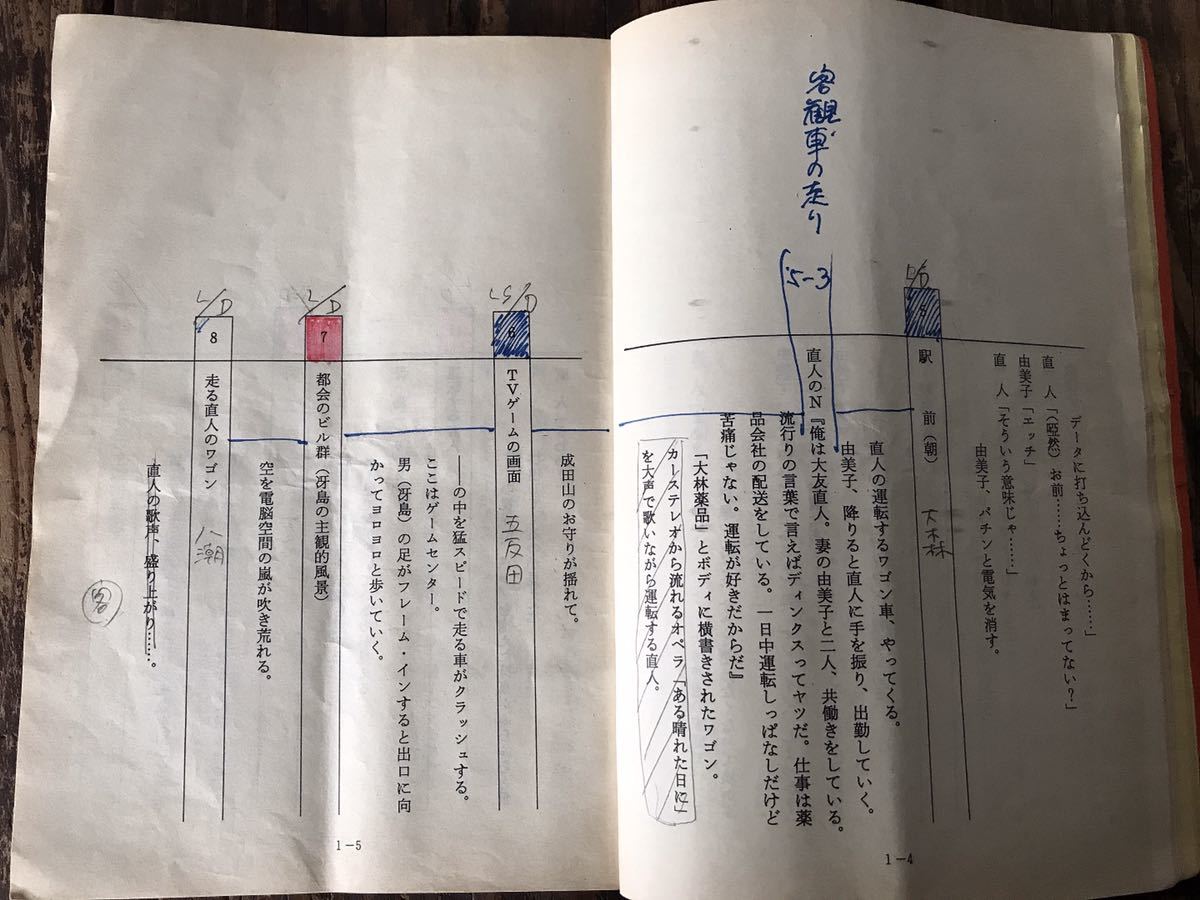 データに打ち込んどくから……」
直　人「（啞然）お前……ちょっとはまってない？」
由美子「エッチ」
直　人「そういう意味じゃ……」
由美子、パチンと電気を消す。
L/D
5
駅　前（朝）
大林
直人の運転するワゴン車、やってくる。
由美子、降りると直人に手を振り、出勤していく。
客観車の走り
5-3
直人のN『俺は大友直人。妻の由美子と二人、共働きをしている。
流行りの言葉で言えばディンクスってヤツだ。仕事は薬
品会社の配送をしている。一日中運転しっぱなしだけど
苦痛じゃない。運転が好きだからだ』
「大林薬品」とボディに横書きされたワゴン。
カーステレオから流れるオペラ「ある晴れた日に」
を大声で歌いながら運転する直人。
1-4
成田山のお守りが揺れて。
LS/D
6
TVゲームの画面
五反田
――の中を猛スピードで走る車がクラッシュする。
ここはゲームセンター。
男（冴島）の足がフレーム・インすると出口に向
かってヨロヨロと歩いていく。
L/D
7
都会のビル群（冴島の主観的風景）
空を電脳空間の嵐が吹き荒れる。
L/D
8
走る直人のワゴン
八潮
直人の歌声、盛り上がり……。
客
1-5